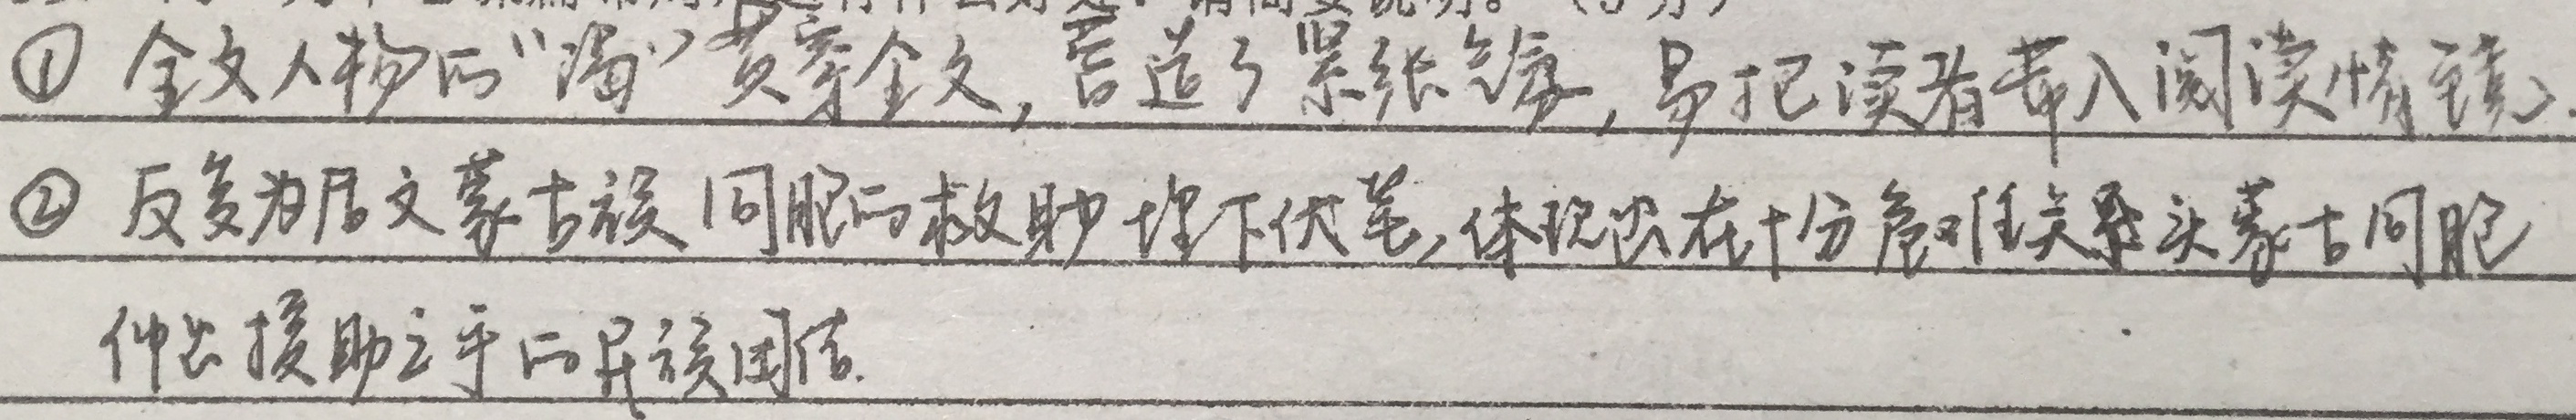 ① 全文人物的“渴”贯穿全文，营造了紧张气氛，易把读者带入阅读情境。
② 反复为后文蒙古族同胞的救助埋下伏笔，体现出在十分危难关头蒙古同胞
伸出援助之手的民族团结.